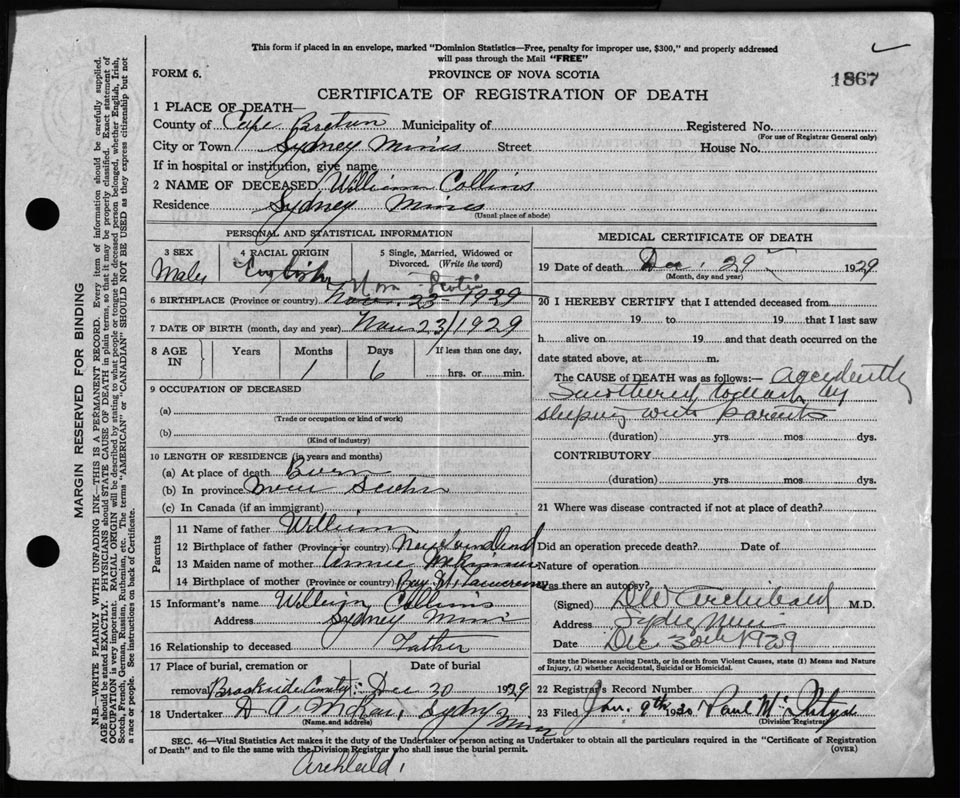 This form if placed in an envelope, marked "Dominion Statistics—Free, penalty for improper use, $300," and properly addressed
will pass through the Mail "FREE"
FORM 6.
PROVINCE OF NOVA SCOTIA
1867
CERTIFICATE OF REGISTRATION OF DEATH
1 PLACE OF DEATH—
County of Cape Breton Municipality of Registered No.
(For use of Registrar General only)
City or Town Sydney Mines Street House No.
If in hospital or institution, give name
2 NAME OF DECEASED William Collins
Residence Sydney Mines
(Usual place of abode)
PERSONAL AND STATISTICAL INFORMATION
3 SEX
Male
4 RACIAL ORIGIN
English
5 Single, Married, Widowed or
Divorced. (Write the word)
Nova Scotia
6 BIRTHPLACE (Province or country) Nov. 23 - 1929
7 DATE OF BIRTH (month, day and year) Nov 23/1929
8 AGE IN Years Months Days If less than one day,
1 6 hrs. or min.
9 OCCUPATION OF DECEASED
(a)
(Trade or occupation or kind of work)
(b)
(Kind of industry)
10 LENGTH OF RESIDENCE (in years and months)
(a) At place of death Born
(b) In province Nova Scotia
(c) In Canada (if an immigrant)
Parents
11 Name of father William
12 Birthplace of father (Province or country) Newfoundland
13 Maiden name of mother Annie McKinnon
14 Birthplace of mother (Province or country) Bay St. Lawrence
15 Informant's name William Collins
Address Sydney Mines
16 Relationship to deceased Father
17 Place of burial, cremation or Date of burial
removal Brookside Dec 30 1929
18 Undertaker Sydney Mines
(Name and address)
MEDICAL CERTIFICATE OF DEATH
19 Date of death Dec. 29 1929
(Month, day and year)
20 I HEREBY CERTIFY that I attended deceased from
19 to 19 that I last saw
h alive on 19 and that death occurred on the
date stated above, at m.
The CAUSE of DEATH was as follows:— accidently
Smothered to death by
sleeping with parents
(duration) yrs mos dys.
CONTRIBUTORY
(duration) yrs mos dys.
21 Where was disease contracted if not at place of death?
Did an operation precede death? Date of
Nature of operation
Was there an autopsy?
(Signed) Archibald M.D.
Address Sydney Mines
Date Dec 30th 1929
State the Disease causing Death, or in death from Violent Causes, state (1) Means and Nature
of Injury, (2) whether Accidental, Suicidal or Homicidal.
22 Registrar's Record Number
23 Filed Jan. 9th 1930 Paul
(Division Registrar)
SEC. 46—Vital Statistics Act makes it the duty of the Undertaker or person acting as Undertaker to obtain all the particulars required in the "Certificate of Registration
of Death" and to file the same with the Division Registrar who shall issue the burial permit.
(OVER)
Archibald,
MARGIN RESERVED FOR BINDING
N.B.—WRITE PLAINLY WITH UNFADING INK—THIS IS A PERMANENT RECORD. Every item of information should be carefully supplied.
AGE should be stated EXACTLY. PHYSICIANS should STATE CAUSE OF DEATH in plain terms, so that it may be properly classified. Exact statement of
OCCUPATION is very important. RACIAL ORIGIN will be described by stating to what people or tongue the deceased person belonged, whether English, Irish,
Scotch, French, German, Russian, Ruthenian, etc. The terms "AMERICAN" or "CANADIAN" SHOULD NOT BE USED as they express citizenship but not
a race or people. See instructions on back of Certificate.